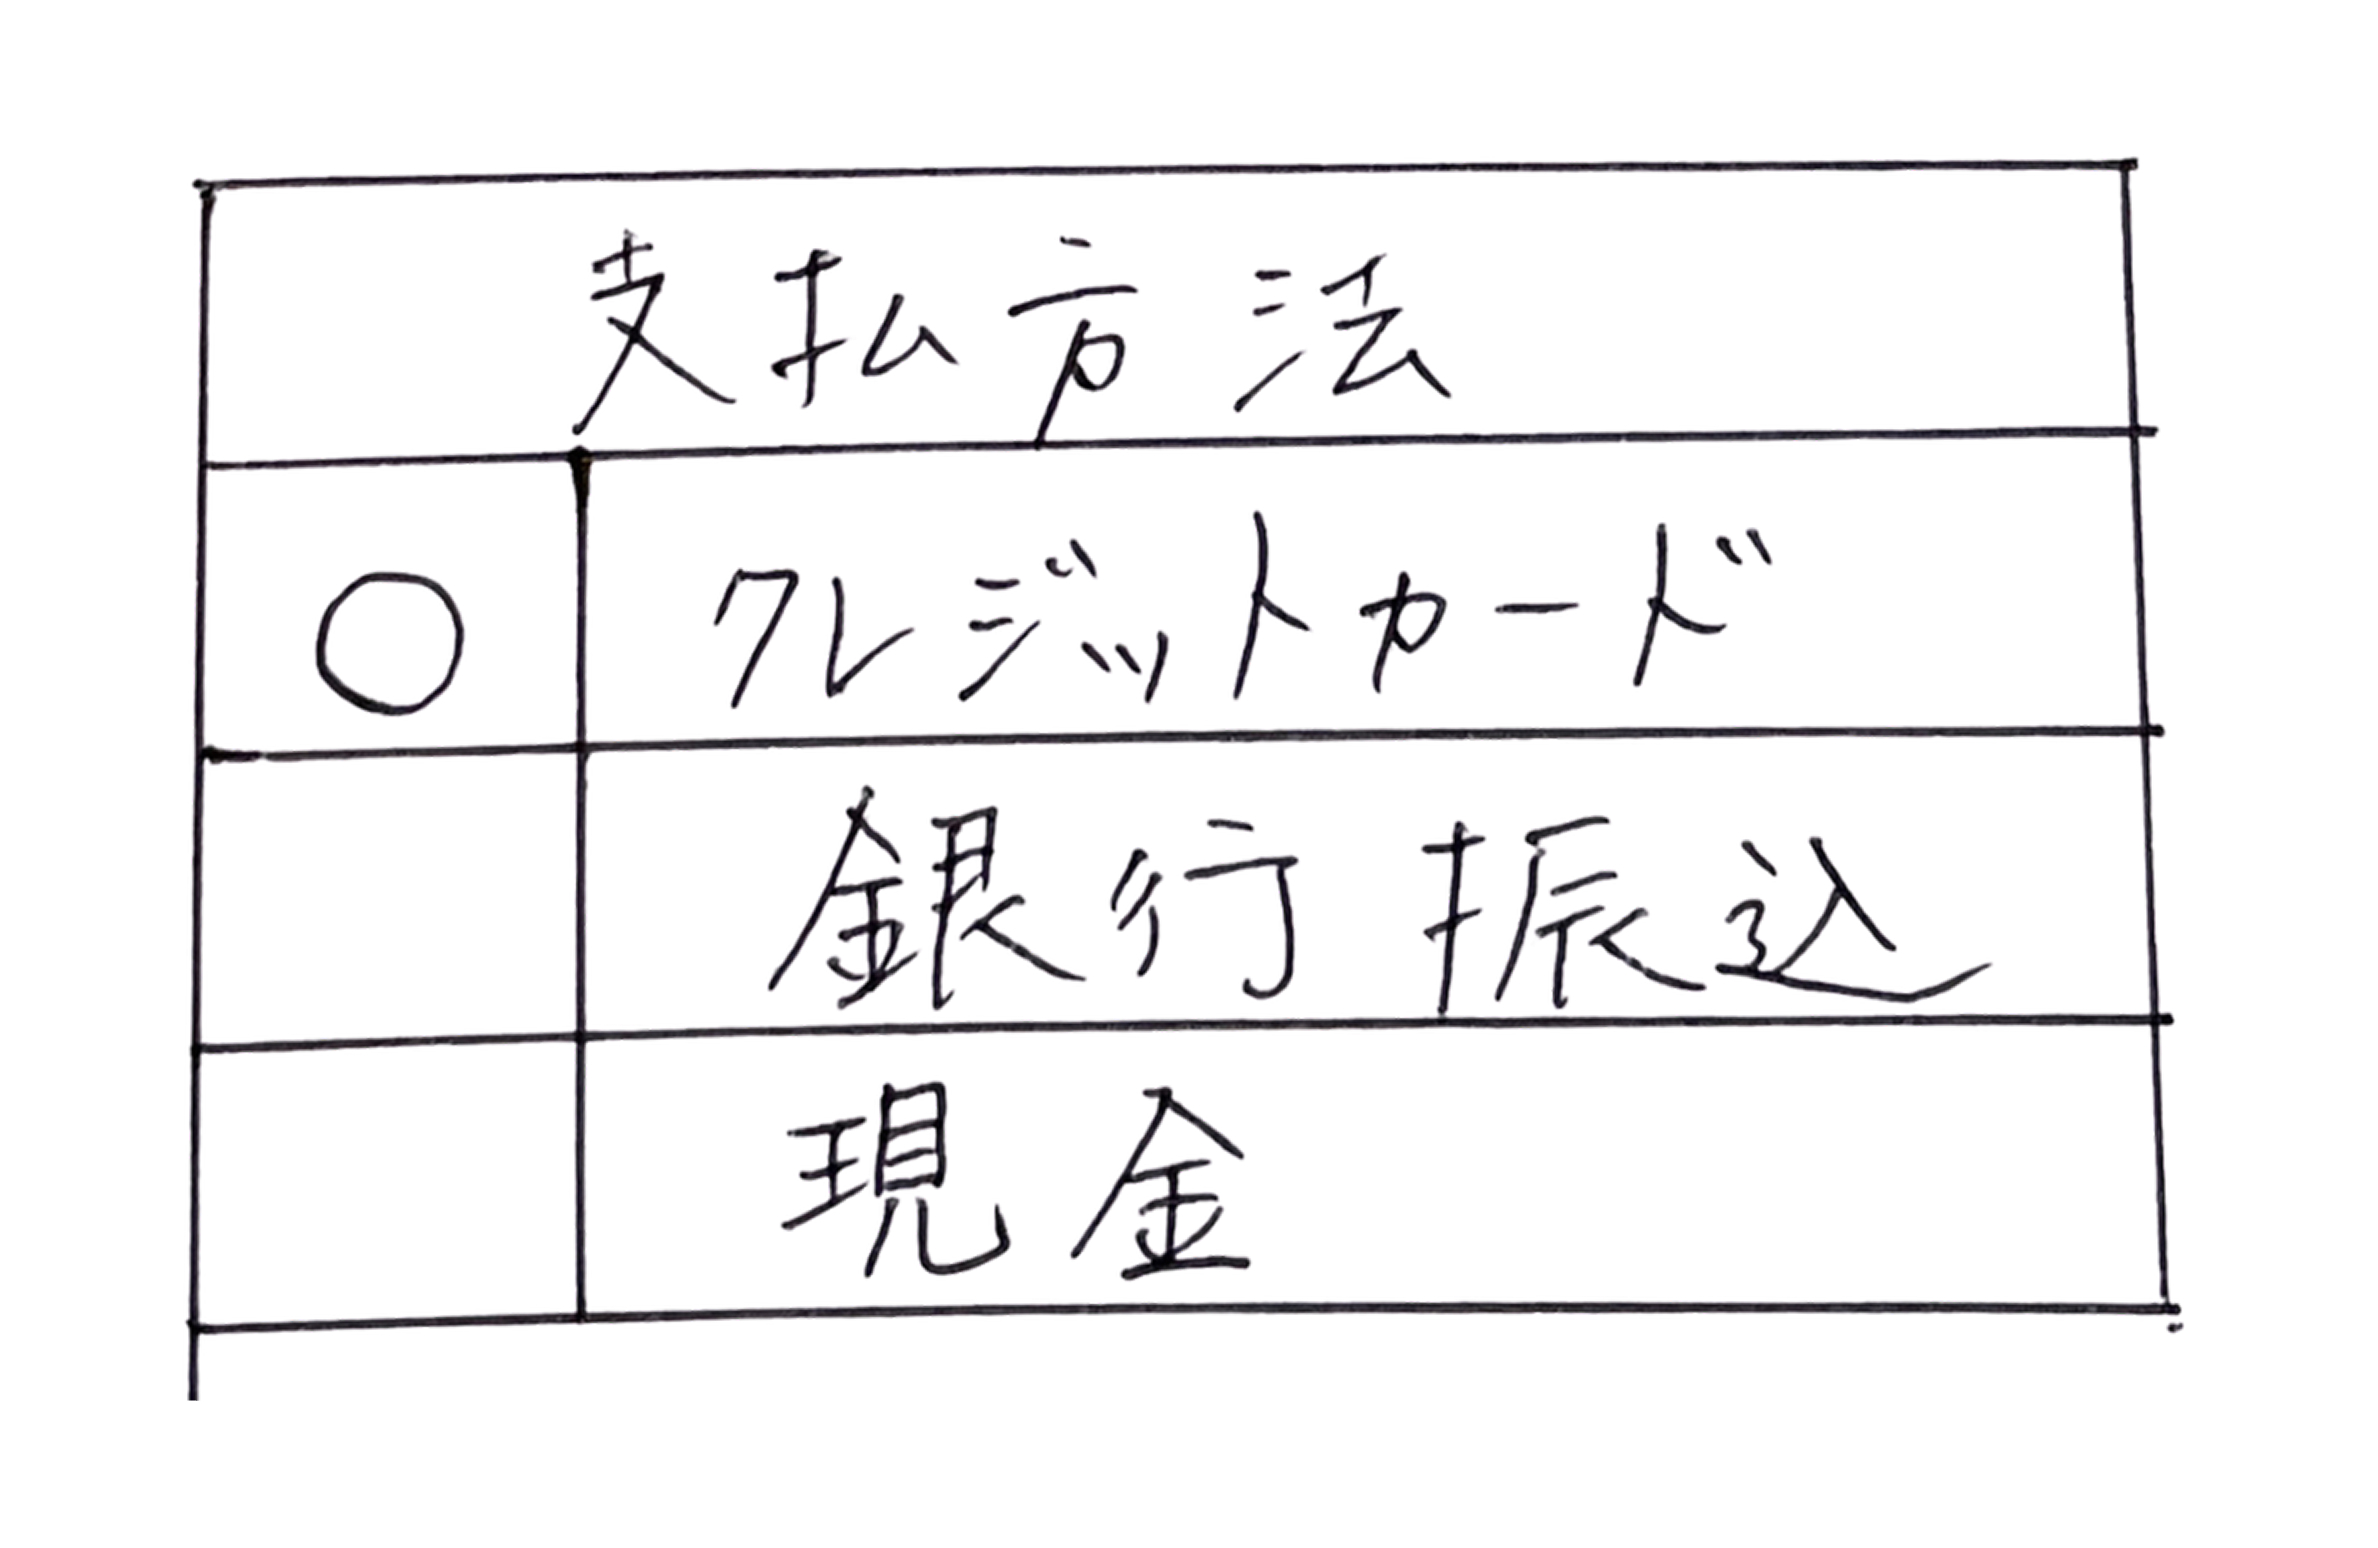 支払方法
○ クレジットカード
銀行振込
現金